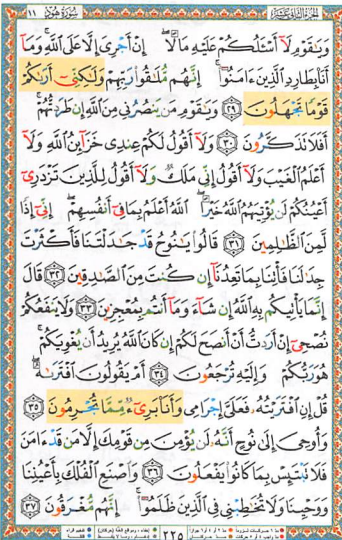 الجزء الثاني عشر سورة هود ١١
وَيَٰقَوْمِ لَآ أَسْـَٔلُكُمْ عَلَيْهِ مَالًا ۖ إِنْ أَجْرِىَ إِلَّا عَلَى ٱللَّهِ ۚ وَمَآ
أَنَا۠ بِطَارِدِ ٱلَّذِينَ ءَامَنُوٓا۟ ۚ إِنَّهُم مُّلَٰقُوا۟ رَبِّهِمْ وَلَٰكِنِّىٓ أَرَىٰكُمْ
قَوْمًا تَجْهَلُونَ ٢٩ وَيَٰقَوْمِ مَن يَنصُرُنِى مِنَ ٱللَّهِ إِن طَرَدتُّهُمْ ۚ
أَفَلَا تَذَكَّرُونَ ٣٠ وَلَآ أَقُولُ لَكُمْ عِندِى خَزَآئِنُ ٱللَّهِ وَلَآ
أَعْلَمُ ٱلْغَيْبَ وَلَآ أَقُولُ إِنِّى مَلَكٌ وَلَآ أَقُولُ لِلَّذِينَ تَزْدَرِىٓ
أَعْيُنُكُمْ لَن يُؤْتِيَهُمُ ٱللَّهُ خَيْرًا ۖ ٱللَّهُ أَعْلَمُ بِمَا فِىٓ أَنفُسِهِمْ ۖ إِنِّىٓ إِذًا
لَّمِنَ ٱلظَّٰلِمِينَ ٣١ قَالُوا۟ يَٰنُوحُ قَدْ جَٰدَلْتَنَا فَأَكْثَرْتَ
جِدَٰلَنَا فَأْتِنَا بِمَا تَعِدُنَآ إِن كُنتَ مِنَ ٱلصَّٰدِقِينَ ٣٢ قَالَ
إِنَّمَا يَأْتِيكُم بِهِ ٱللَّهُ إِن شَآءَ وَمَآ أَنتُم بِمُعْجِزِينَ ٣٣ وَلَا يَنفَعُكُمْ
نُصْحِىٓ إِنْ أَرَدتُّ أَنْ أَنصَحَ لَكُمْ إِن كَانَ ٱللَّهُ يُرِيدُ أَن يُغْوِيَكُمْ ۚ
هُوَ رَبُّكُمْ وَإِلَيْهِ تُرْجَعُونَ ٣٤ أَمْ يَقُولُونَ ٱفْتَرَىٰهُ ۖ
قُلْ إِنِ ٱفْتَرَيْتُهُۥ فَعَلَىَّ إِجْرَامِى وَأَنَا۠ بَرِىٓءٌ مِّمَّا تُجْرِمُونَ ٣٥
وَأُوحِىَ إِلَىٰ نُوحٍ أَنَّهُۥ لَن يُؤْمِنَ مِن قَوْمِكَ إِلَّا مَن قَدْ ءَامَنَ
فَلَا تَبْتَئِسْ بِمَا كَانُوا۟ يَفْعَلُونَ ٣٦ وَٱصْنَعِ ٱلْفُلْكَ بِأَعْيُنِنَا
وَوَحْيِنَا وَلَا تُخَٰطِبْنِى فِى ٱلَّذِينَ ظَلَمُوٓا۟ ۚ إِنَّهُم مُّغْرَقُونَ ٣٧
٢٢٥